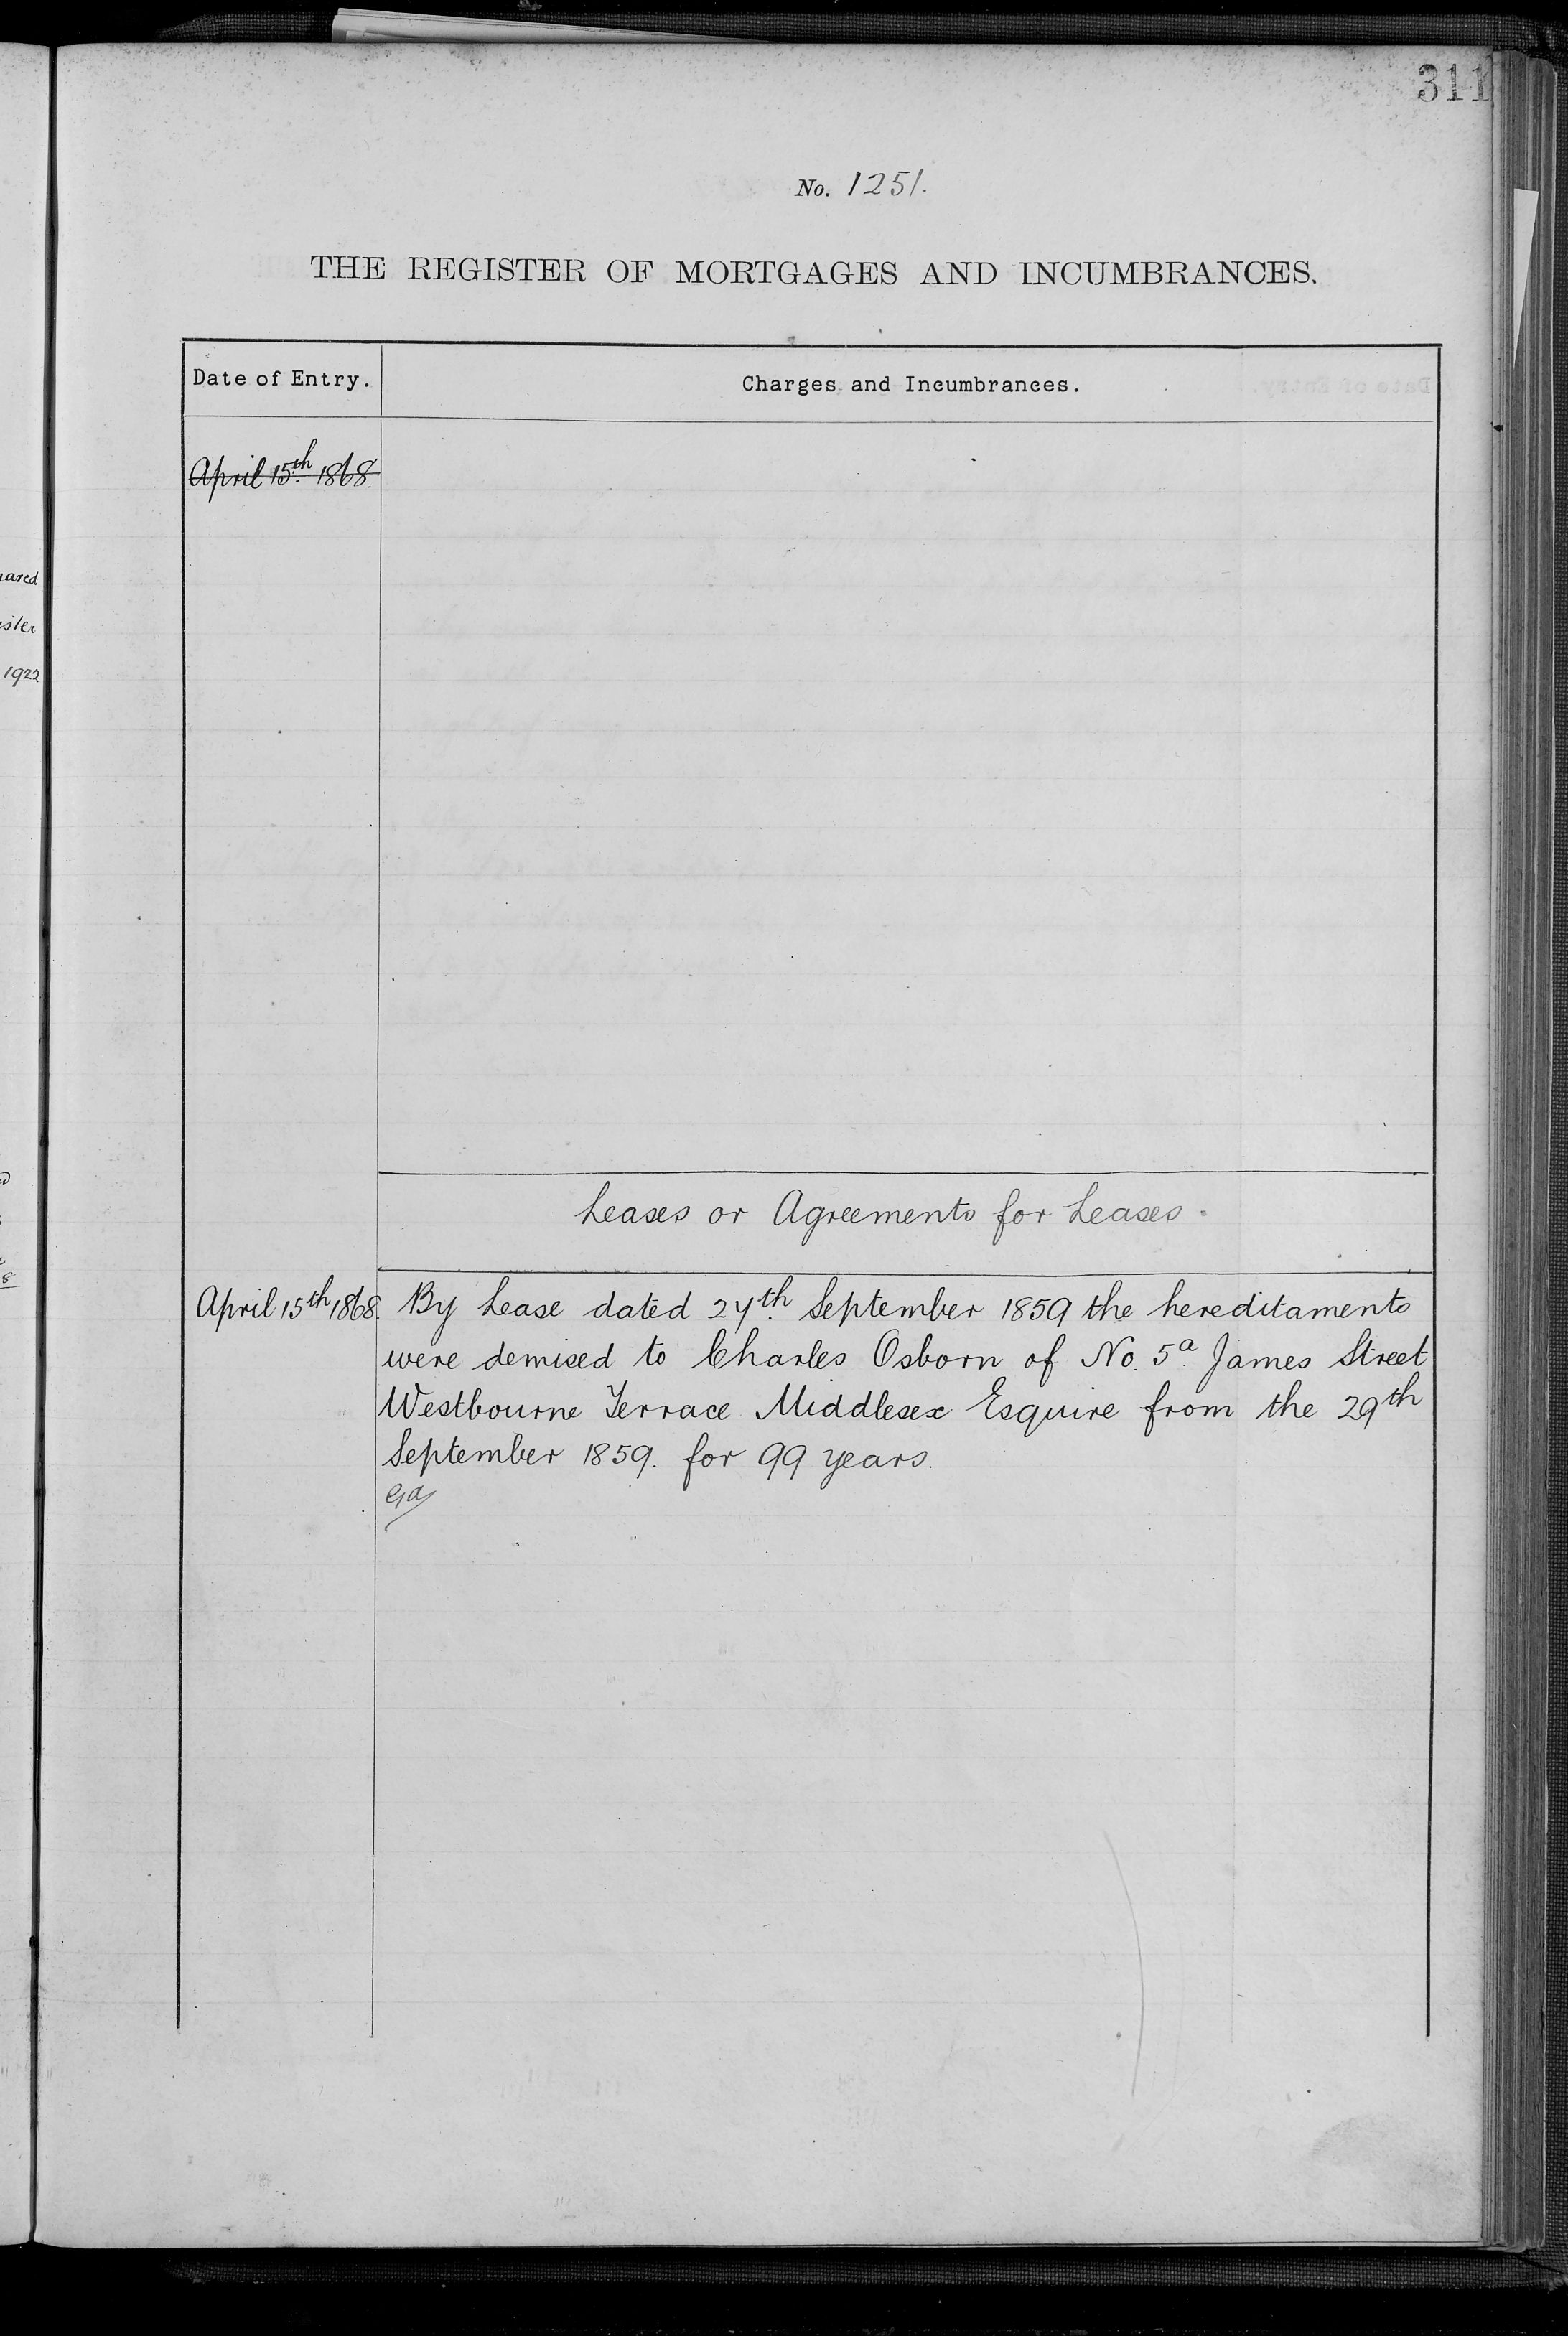 311
No. 1251.
THE REGISTER OF MORTGAGES AND INCUMBRANCES.
Date of Entry.
Charges and Incumbrances.
April 15th 1868.
1922
Leases or Agreements for Leases.
April 15th 1868. By Lease dated 24th September 1859 the hereditaments
were demised to Charles Osborn of No. 5a James Street
Westbourne Terrace Middlesex Esquire from the 29th
September 1859. for 99 years.